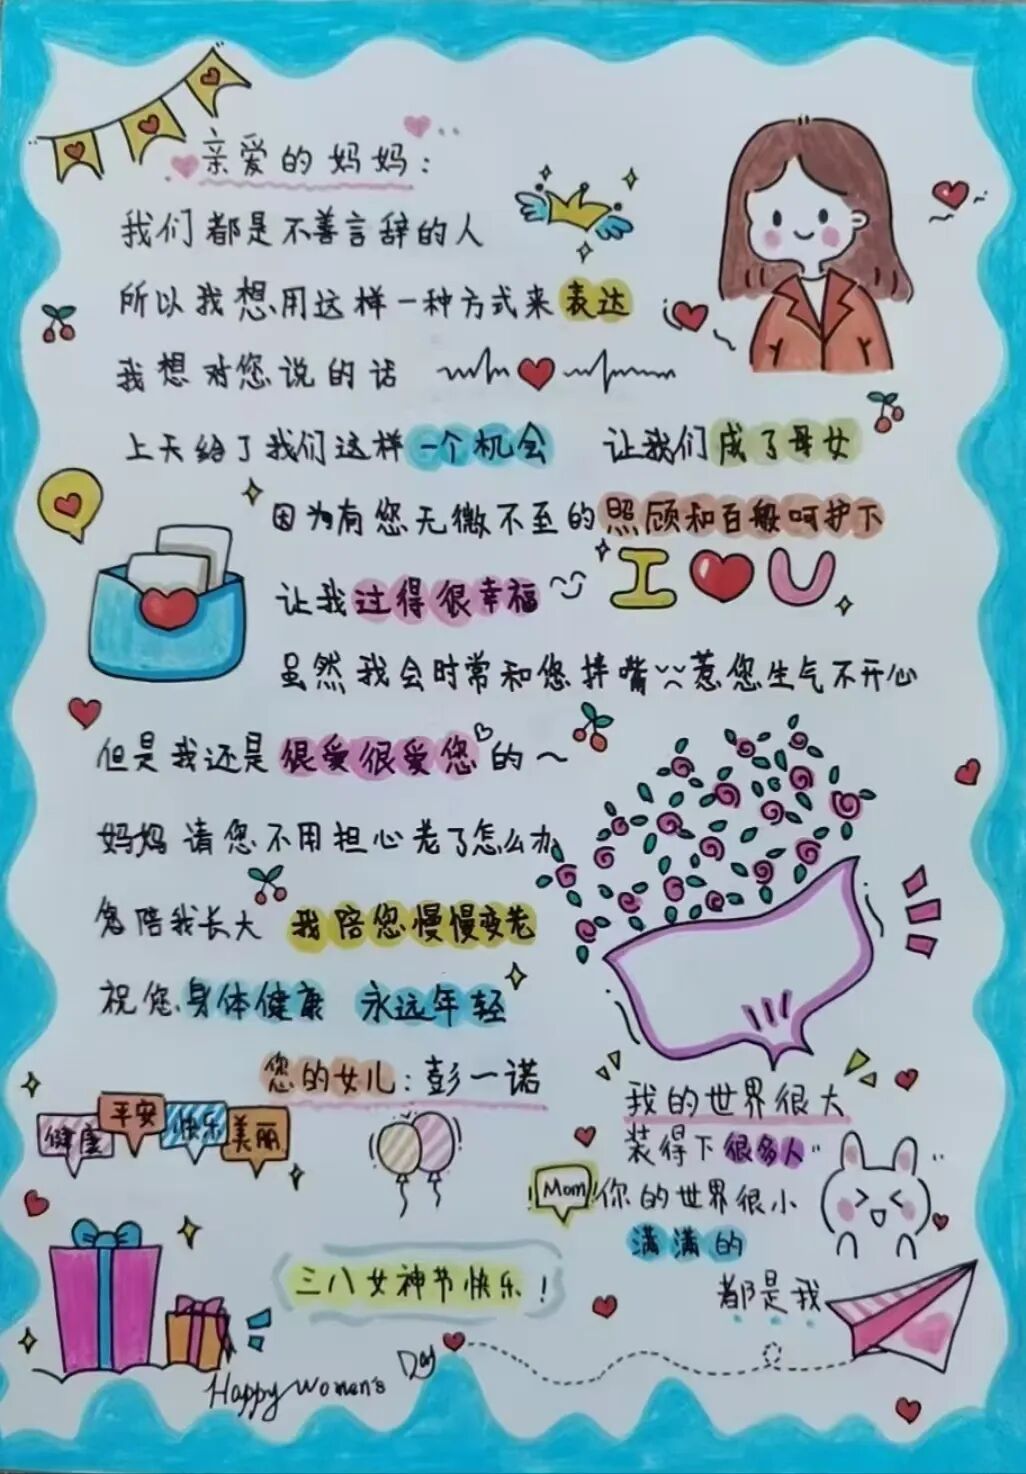 亲爱的妈妈：
我们都是不善言辞的人
所以我想用这样一种方式来表达
我想对您说的话
上天给了我们这样一个机会 让我们成了母女
因为有您无微不至的照顾和百般呵护下
让我过得很幸福
I U
虽然我会时常和您拌嘴 惹您生气不开心
但是我还是很爱很爱您的～
妈妈请您不用担心老了怎么办
您陪我长大 我陪您慢慢变老
祝您身体健康 永远年轻
您的女儿：彭一诺
健康 平安 快乐 美丽
我的世界很大
装得下很多人
Mom
你的世界很小
满满的
都是我
三八女神节快乐！
Happy Women's Day